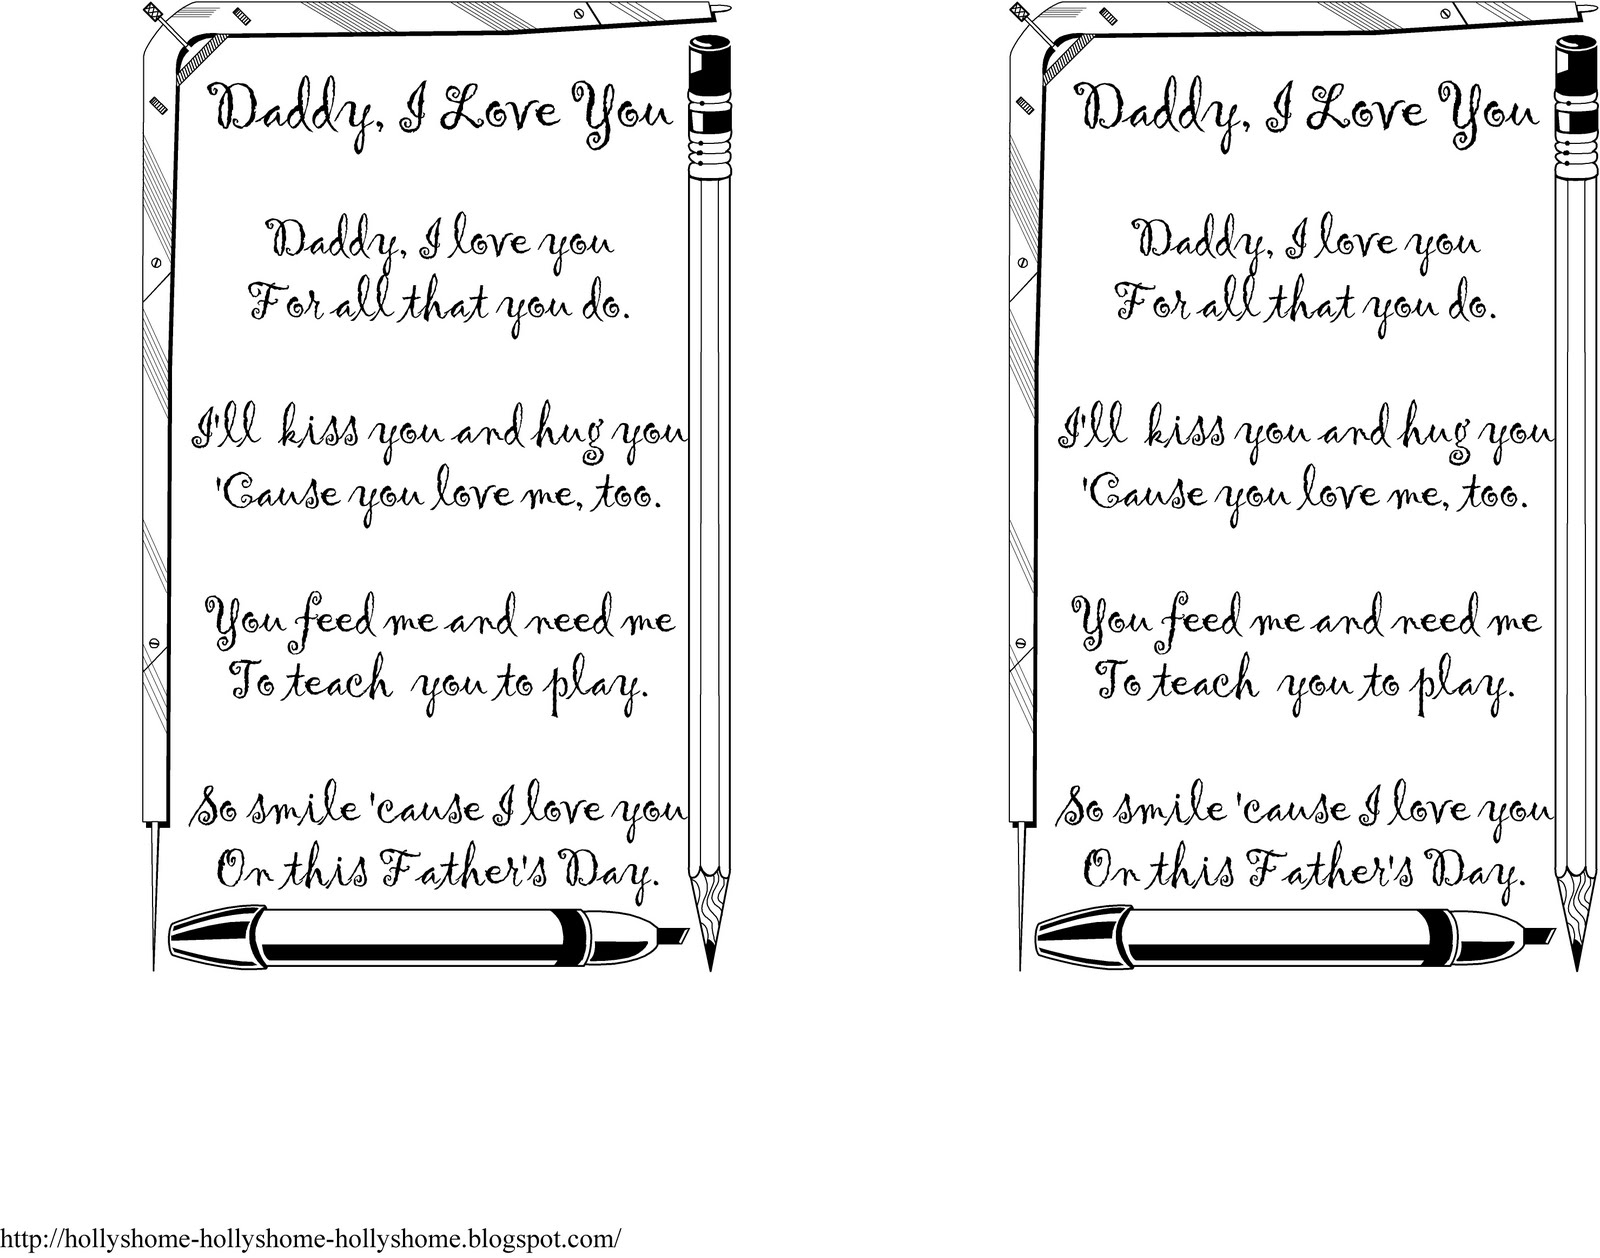 Daddy, I Love You
Daddy, I love you
For all that you do.
I'll kiss you and hug you
'Cause you love me, too.
You feed me and need me
To teach you to play.
So smile 'cause I love you
On this Father's Day.
Daddy, I Love You
Daddy, I love you
For all that you do.
I'll kiss you and hug you
'Cause you love me, too.
You feed me and need me
To teach you to play.
So smile 'cause I love you
On this Father's Day.
http://hollyshome-hollyshome-hollyshome.blogspot.com/